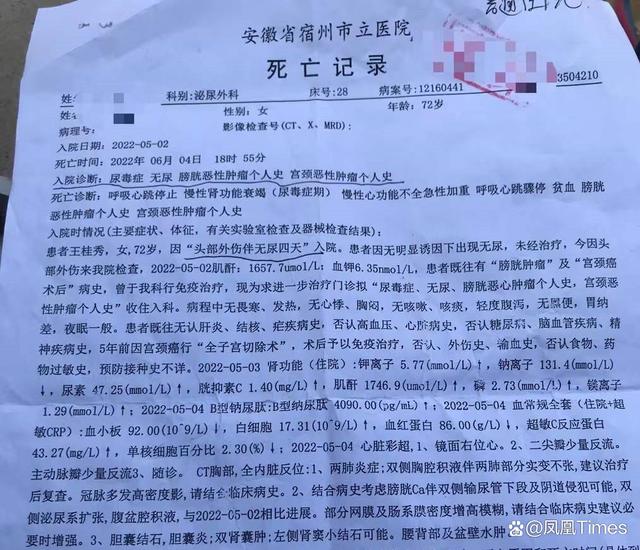 安徽省宿州市立医院
死亡记录
科别:泌尿外科 床号:28 病案号:12160441
3504210
性别:女 年龄:72岁
病理号: 影像检查号(CT、X、MRD):
入院日期:2022-05-02
死亡时间:2022年 06月 04日 18时 55分
入院诊断:尿毒症 无尿 膀胱恶性肿瘤个人史 宫颈恶性肿瘤个人史
死亡诊断:呼吸心跳停止 慢性肾功能衰竭(尿毒症期) 慢性心功能不全急性加重 呼吸心跳骤停 贫血 膀胱
恶性肿瘤个人史 宫颈恶性肿瘤个人史
入院时情况(主要症状、体征,有关实验室检查及器械检查结果):
患者王桂秀,女,72岁,因“头部外伤伴无尿四天”入院。患者因无明显诱因下出现无尿,未经治疗,今因头
部外伤来我院检查,2022-05-02肌酐:1657.7umol/L;血钾6.35nmol/L,患者既往有“膀胱肿瘤”及“宫颈癌
术后”病史,曾于我科行免疫治疗,现为求进一步治疗门诊拟“尿毒症、无尿、膀胱恶心肿瘤个人史,宫颈恶
性肿瘤个人史”收住入科。病程中无畏寒、发热,无心悸、胸闷,无咳嗽、咳痰,轻度腹泻,无黑便,胃纳
差,夜眠一般。患者既往无认肝炎、结核、疟疾病史,否认高血压、心脏病史,否认糖尿病、脑血管疾病、精
神疾病史,5年前因宫颈癌行“全子宫切除术”,术后予以免疫治疗,否认、外伤史、输血史,否认食物、药
物过敏史,预防接种史不详。2022-05-03 肾功能(住院):钾离子 5.77(mmol/L)↑,钠离子 131.4(mmol/L)
↓,尿素 47.25(mmol/L)↑,胱抑素C 1.40(mg/L)↑,肌酐 1746.9(umol/L)↑,磷 2.73(mmol/L)↑,镁离子
1.29(mmol/L)↑;2022-05-04 B型钠尿肽:B型纳尿肽 4090.00(pg/mL)↑;2022-05-04 血常规全套(住院+超
敏CRP):血小板 92.00(10^9/L)↓,白细胞 17.31(10^9/L)↑,血红蛋白 86.00(g/L)↓,超敏C反应蛋白
43.27(mg/L)↑,单核细胞百分比 2.30(%)↓;2022-05-04 心脏彩超,1、镜面右位心。2、二尖瓣少量反流。
主动脉瓣少量反流3、随诊。 CT胸部,全内脏反位:1、两肺炎症;双侧胸腔积液伴两肺部分实变不张,建议治疗
后复查。冠脉多发高密度影,请结合临床病史。2、结合病史考虑膀胱Ca伴双侧输尿管下段及阴道侵犯可能,双
侧泌尿系扩张,腹盆腔积液,与2022-05-02相比进展。部分网膜及肠系膜密度增高模糊,请结合临床病史建议必
要时增强。3、胆囊结石,胆囊炎;双肾囊肿;左侧肾窦小结石可能。腰背部及盆壁水肿
@凤凰Times